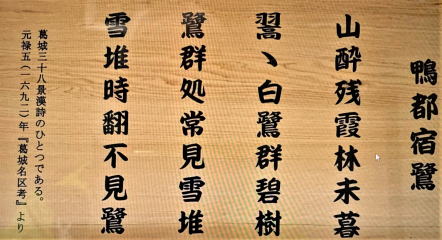 鴨都宿鷺
山酔残霞林未暮
翯丶白鷺群碧樹
鷺群処常見雪堆
雪堆時翻不見鷺
葛城三十八景漢詩のひとつである。
元禄五(一六九二)年『葛城名区考』より